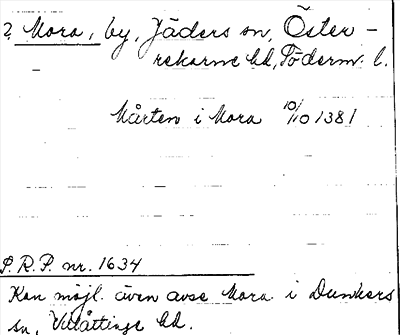 ? Mora, by, Jäders sn, Öster-
rekarne hd, Söderm. l.
Mårten i Mora 10/10 1381
S.R.P. nr. 1634
Kan möjl. även avse Mora i Dunkers
sn, Villåttinge hd.